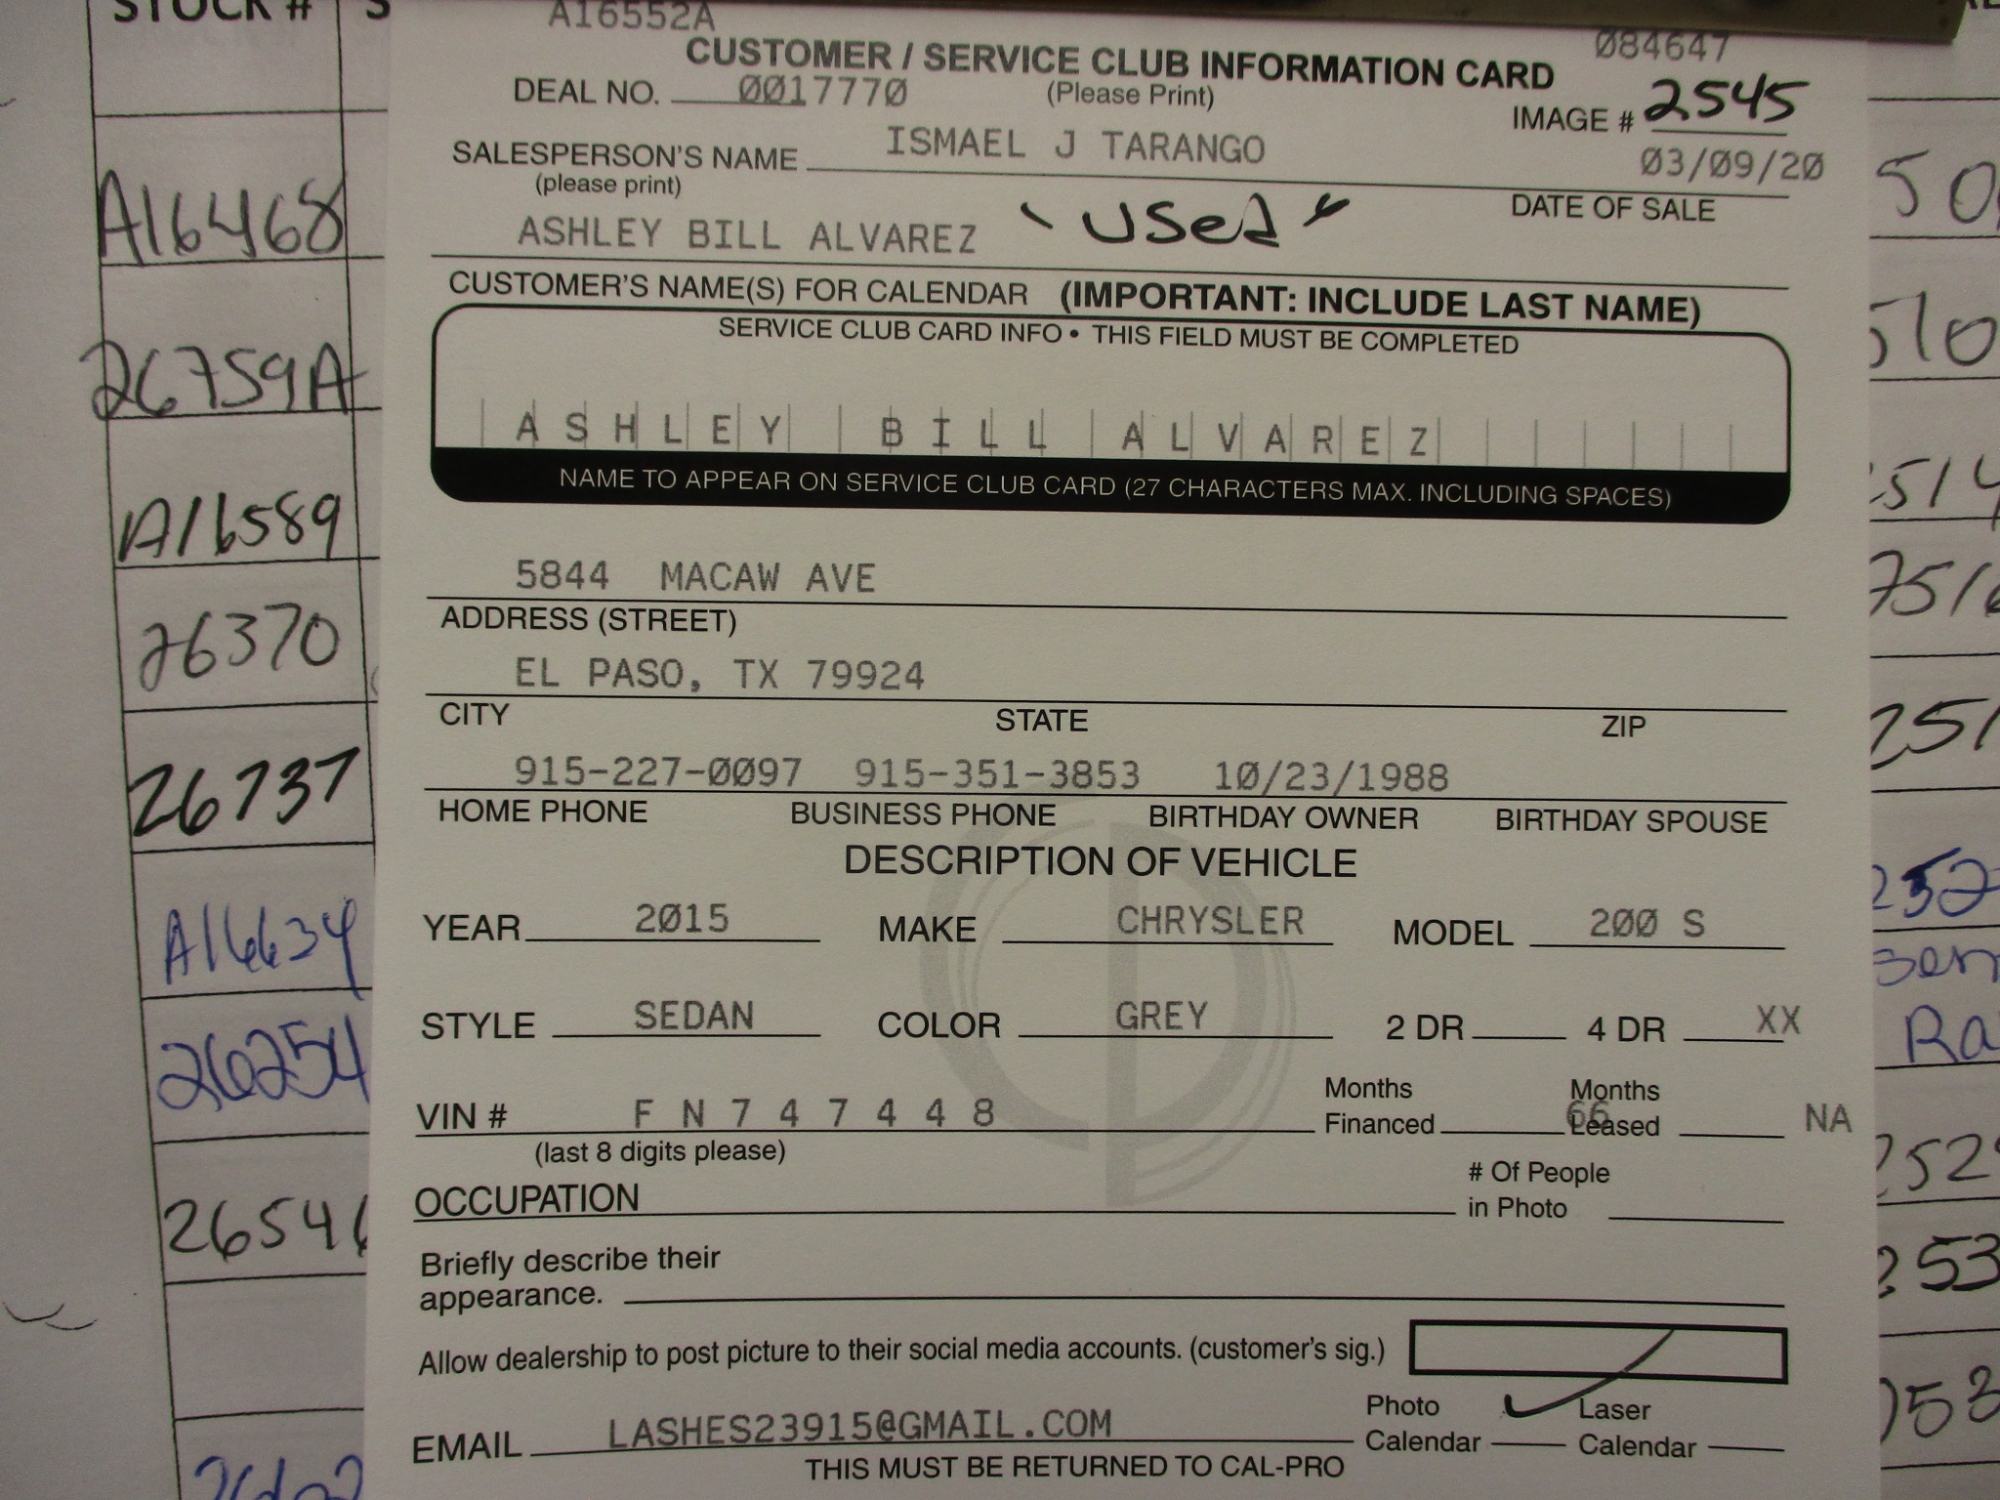 STOCK #
A16552A
084647
CUSTOMER / SERVICE CLUB INFORMATION CARD
DEAL NO. 0017770 (Please Print)
IMAGE # 2545
SALESPERSON'S NAME ISMAEL J TARANGO
(please print)
03/09/20
DATE OF SALE
ASHLEY BILL ALVAREZ "Used"
CUSTOMER'S NAME(S) FOR CALENDAR (IMPORTANT: INCLUDE LAST NAME)
SERVICE CLUB CARD INFO • THIS FIELD MUST BE COMPLETED
ASHLEY BILL ALVAREZ
NAME TO APPEAR ON SERVICE CLUB CARD (27 CHARACTERS MAX. INCLUDING SPACES)
5844 MACAW AVE
ADDRESS (STREET)
EL PASO, TX 79924
CITY STATE ZIP
915-227-0097 915-351-3853 10/23/1988
HOME PHONE BUSINESS PHONE BIRTHDAY OWNER BIRTHDAY SPOUSE
DESCRIPTION OF VEHICLE
YEAR 2015 MAKE CHRYSLER MODEL 200 S
STYLE SEDAN COLOR GREY 2 DR 4 DR XX
VIN # F N 7 4 7 4 4 8 Months Financed 66 Months Leased NA
(last 8 digits please)
OCCUPATION # Of People in Photo
Briefly describe their
appearance.
Allow dealership to post picture to their social media accounts. (customer's sig.)
EMAIL LASHES23915@GMAIL.COM Photo Calendar Laser Calendar
THIS MUST BE RETURNED TO CAL-PRO
A16468
26759A
A16589
26370
26737
A16634
26254